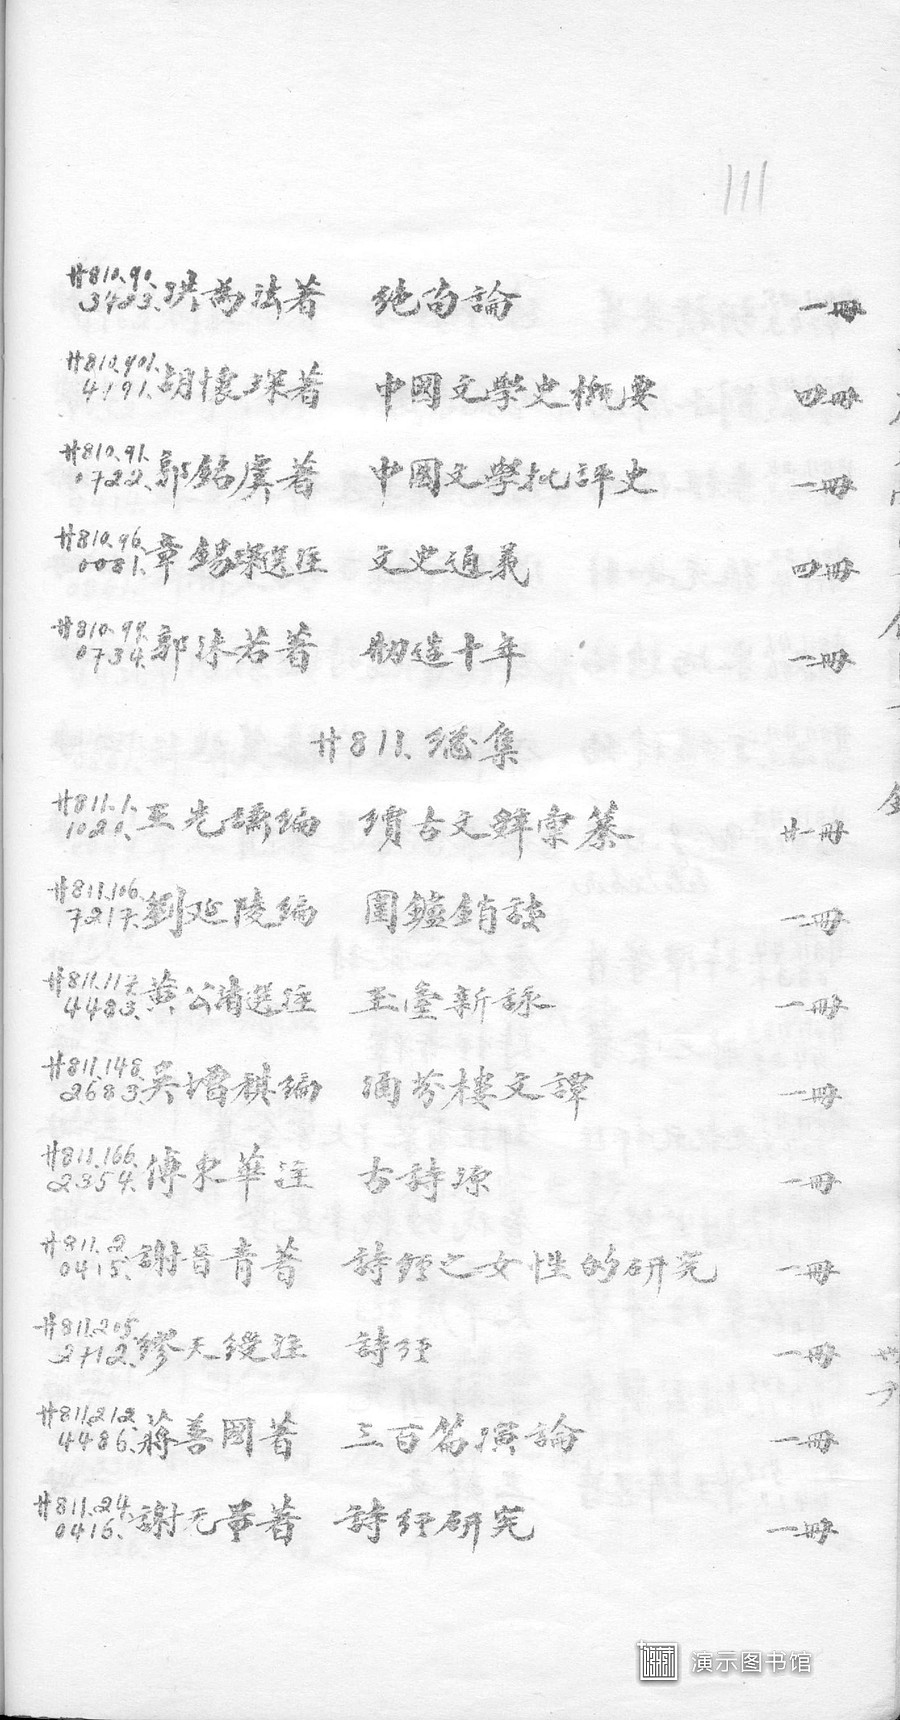 111
廿810.90. 3423. 洪為法著 絕句論 一冊
廿810.901. 4191. 胡懷琛著 中國文學史概要 四冊
廿810.91. 0722. 郭銘虞著 中國文學批評史 一冊
廿810.96. 0081. 章錫琛選注 文史通義 四冊
廿810.99. 0734. 郭沫若著 創造十年 一冊
廿811. 總集
廿811.1. 1021. 王光編 續古文辭彙纂 廿一冊
廿811.106. 7217. 劉延陵編 圍鑪銷讀 一冊
廿811.117. 4483. 黃公渚選注 玉臺新詠 一冊
廿811.148. 2683. 吳增祺編 涵芬樓文譚 一冊
廿811.166. 2354. 傅東華注 古詩源 一冊
廿811.2 0415. 謝晉青著 詩經之女性的研究 一冊
廿811.205. 2712. 繆天綬注 詩經 一冊
廿811.212. 4486. 蔣善國著 三百篇演論 一冊
廿811.24. 0416. 謝无量著 詩經研究 一冊
演示图书馆